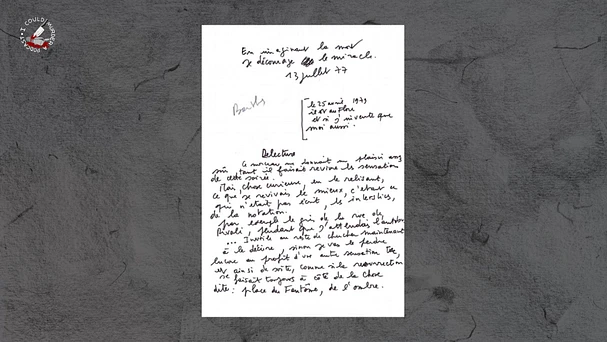 I COULD MURDER A PODCAST
En imaginant la mort
je décourage le miracle.
13 juillet 77
le 25 avril 1979
il et au Flore
et si j'invente que
moi aussi.
Relecture
Ce morceau me donnait un plaisir assez
sûr, tant il faisait revivre les sensations
de cette soirée.
Mais, chose curieuse, en le relisant,
ce que je revivais le mieux, c'était ce
qui n'était pas écrit, les interstices,
de la notation.
par exemple le gris de la rue de
Rivoli, pendant que j'attendais l'autobus
... Inutile au reste de chercher maintenant
à le décrire, sinon je vais le perdre
encore au profit d'une autre sensation tue,
et ainsi de suite, comme si la résurrection
se faisait toujours à côté de la chose
dite : place du Fantôme, de l'ombre.